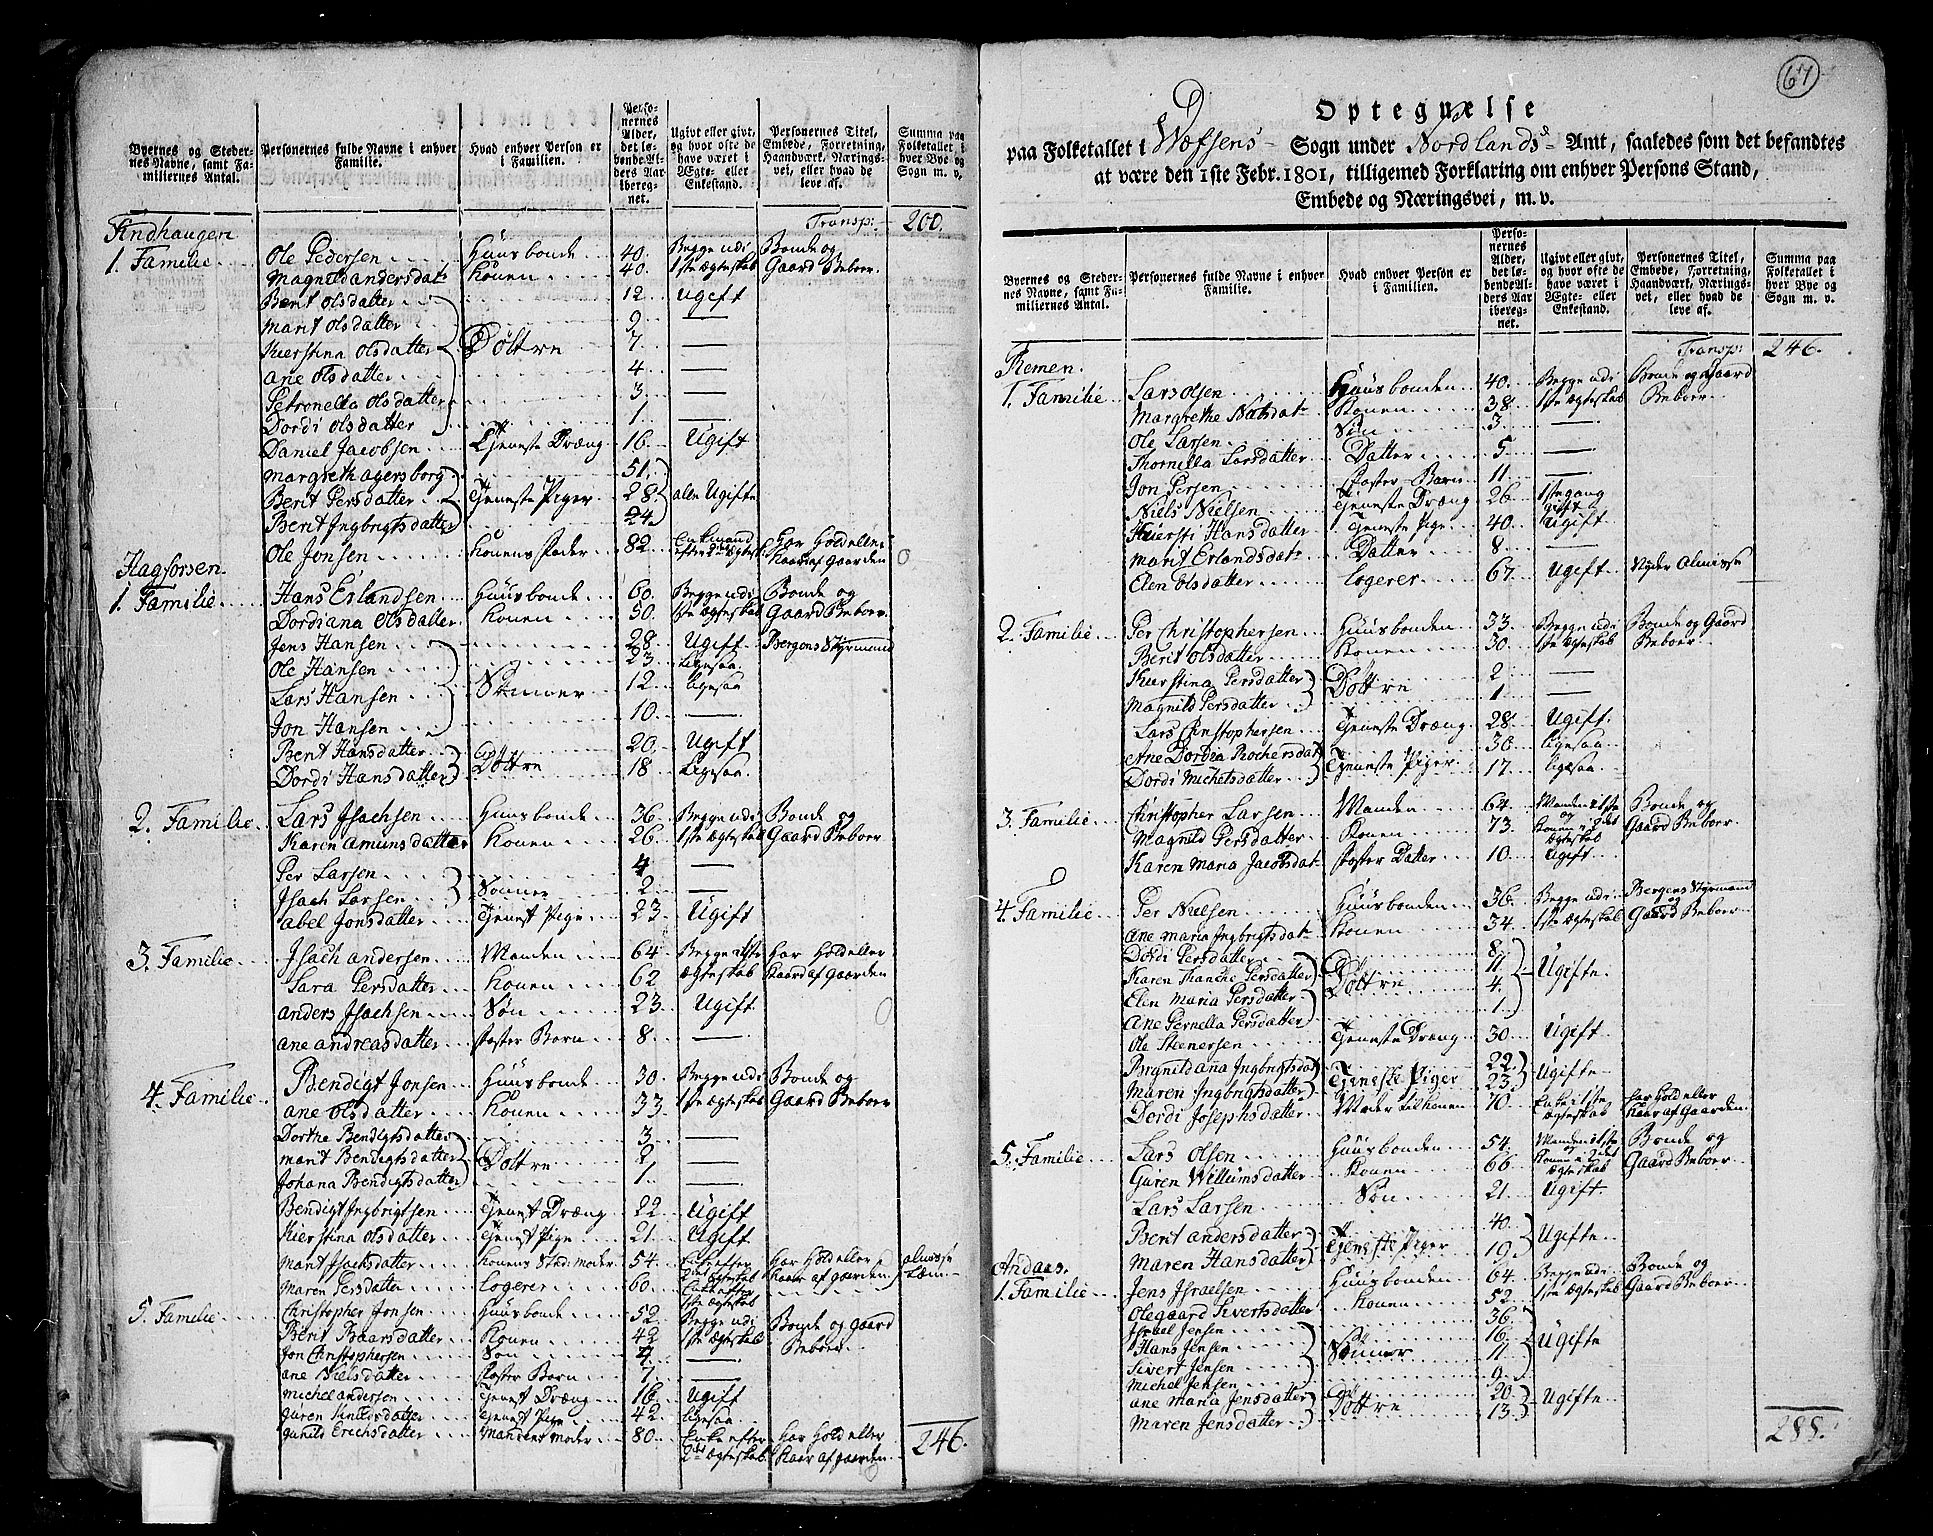 Byernes og Steder-
nes Navne, samt Fa-
miliernes Antal.
Personernes fulde Navne i enhver
Familie.
Hvad enhver Person er
i Familien.
Perso-
nernes
Alder,
det lø-
bende Al-
ders Aar
iberegnet.
Ugivt eller givt,
og hvor ofte de
have været i
Ægte- eller
Enkestand.
Personernes Titel,
Embede, Forretning,
Haandværk, Nærings-
vei, eller hvad de
leve af.
Summa paa
Folketallet i
hver Bye og
Sogn m. v.
Transp: 200.
Findhaugen
1. Familie Ole Pedersen Huusbonde 40. Begge udi Bonde og
Magnild andersdat. Konen 40. 1ste Ægteskab Gaard Beboer.
Berit olsdatter 12 Ugift
Marit olsdatter 9 —
Kierstina olsdatter Döttre 7. —
Ane olsdatter 4 —
Petronella olsdatter 3 —
Dordi olsdatter 1. —
Daniel Jacobsen Tjeneste Dræng 16. Ugift
Margreth agersborg 51.
Berit Persdatter Tjeneste Piger 28 alen Ugifte
Berit Ingbrigtsdatter 24.
Ole Jonsen Konens Fader 82. Enkemand Har Hold eller
efter 2det Ægtesk. Kaar af Gaarden
Hagforsen.
1. Familie Hans Erlandsen Huusbonde 60. Begge udi Bonde og
Dordiana olsdatter Konen 50. 1ste Ægteskab Gaard Beboer.
Jens Hansen 28. Ugift Bergens Styrmand
Ole Hansen 23. ligesaa
Lars Hansen Sönner 12 ligesaa
Jon Hansen 10. —
Berit Hansdatter 20. Ugift
Dordi Hansdatter Döttre 18. ligesaa
2. Familie Lars Isachsen Huusbonde 36. Begge udi Bonde og
Karen Amunsdatter Konen 26. 1ste Ægteskab Gaard Beboer
Per Larsen 4 —
Isach Larsen Sönner 2 —
abel Jonsdatter Tjenest Pige 23. Ugift
3. Familie Isach andersen Manden 64. Begge 1ste Har Hold eller
Sara Persdatter Konen 62 Ægteskab Kaar af Gaarden
anders Isachsen Søn 23 Ugift.
ane andreasdatter Foster Barn 8. —
4. Familie Bendigt Jonsen Huusbonde 30. Begge udi Bonde og
ane olsdatter Konen 33. 1ste Ægteskab Gaard Beboer
Dorthe Bendigtsdatter 3. —
marit Bendigtsdatter Döttre 2 —
Johana Bendigtsdatter 1. —
Bendigt Ingbrigtsen Tjenest Dræng 22 Ugift
Kierstina olsdatter Tjenest Pige 21. Ugift
Marit Isachsdatter Konens Sted: moder 54. Enke efter Har Hold eller
2det Ægteskab Kaar af gaarden
Maren Persdatter Logerer 60. Enke efter almisse
1ste Ægteskab Lem
5. Familie Christopher Jonsen Huusbonde 52. Begge udi Bonde og gaard
Berit Baarsdatter Konen 42 1ste Ægteskab Beboer.
Jon Christophersen Søn 4 —
ane Nielsdatter Foster Barn 7. —
Michel andersen Tjenest Dræng 16. Ugift
guren Knudsdatter Tjenest Pige 42. ligesaa
gunild Erichsdatter Mandens Moder 80. Enke efter Har Hold eller
2det Ægteskab. Kaar af gaarden. 246.
67
Optegnelse
paa Folketallet i Wefsens Sogn under Nordlands Amt, saaledes som det befandtes
at være den 1ste Febr. 1801, tilligemed Forklaring om enhver Persons Stand,
Embede og Næringsvei, m. v.
Byernes og Steder-
nes Navne, samt Fa-
miliernes Antal.
Personernes fulde Navne i enhver
Familie.
Hvad enhver Person er
i Familien.
Perso-
nernes
Alder,
det lø-
bende Al-
ders Aar
iberegnet.
Ugivt eller givt,
og hvor ofte de
have været i
Ægte- eller
Enkestand.
Personernes Titel,
Embede, Forretning,
Haandværk, Nærings-
vei, eller hvad de
leve af.
Summa paa
Folketallet i
hver Bye og
Sogn m. v.
Transp: 246.
Remen.
1. Familie Lars olsen Huusbonden 40. Begge udi Bonde og Gaard
Margrethe Batsdat Konen 38. 1ste Ægteskab Beboer
Ole Larsen Søn 3 —
Thornilla Larsdatter Datter 5 —
Jon Persen Foster-Barn 11 —
Niels Nielsen Tjeneste Dræng 26. 1ste gang gift
Kiersti Hansdatter Tjeneste Pige 40. Ugift.
Marit Erlandsdat Datter 8 —
Elen olsdatter Logerer 67. Ugift. Nyder Almisse
2. Familie Per Christophersen Huusbonden 33. Begge udi Bonde og Gaard
Berit olsdatter Konen 30. 1ste Ægteskab Beboer.
Kierstina Persdatter 2 —
Magnild Persdatter Döttre 1. —
Lars Christophersen Tjeneste Dræng 28. Ugift.
Ane Dordia Rochersdat 30. ligesaa
Dordi Michelsdatter Tjeneste Piger 17. ligesaa
3. Familie Christopher Larsen Manden 64. Manden i 1ste Bonde og
Magnild Persdatter Konen 73. og Konen i 2det Gaard Beboer.
Ægteskab
Karen Maria Jacobsdat Foster Datter 10. Ugift
4. Familie Per Nielsen Huusbonden 36. Begge udi Bergens Styrmand
og
ane maria Ingbrigtsdat Konen 34. 1ste Ægteskab Gaard Beboer
Dordi Persdatter 8.
Karen Hanche Persdatter 11
Elen Maria Persdatter Döttre 4. Ugifte.
Ane Pernella Persdatter 1.
Ole Steenersen Tjeneste Dræng 30. Ugift.
Brynildana Ingbrigtsdat 22.
Maren Ingbrigtsdatter Tjeneste Piger 23. Ugifte
Dordi Josephsdatter Moder til Konen 70. Enke i 1ste Har Hold eller
Ægteskab Kaar af Gaarden.
5. Familie Lars olsen Huusbonden 54. Manden i 1ste Bonde og
Guren Willumsdatter Konen 66. Konen i 2det Gaard Beboer
Ægteskab
Lars Larsen Søn 21. Ugift.
Berit andersdatter 40.
Maren Hansdatter Tjeneste Piger 19. Ugifte
Andaas.
1. Familie Jens Israelsen Huusbonden 64. Begge udi Bonde og
Olegaard Sivertsdatter Konen 52. 1ste Ægteskab Gaard Beboer
Israel Jensen 36.
Hans Jensen 16.
Sivert Jensen Sönner 11. Ugifte
Michel Jensen 9.
ane Maria Jensdatter 20.
Maren Jensdatter Döttre 13. Ugifte
288.